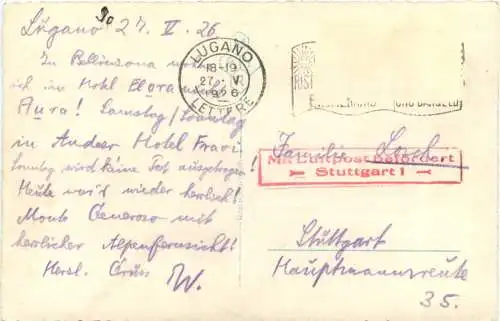 Lugano 27. V. 26
In Bellinzona
ich im Hotel
Aura! Samstag/Sonntag
in Andeer Hotel Fravi
Sonntag wird keine Post ausgetragen!
Heute war's wieder herrlich!
Monte Generoso mit
herrlicher Alpenfernsicht!
Herzl. Grüss
W.
LUGANO
18-19
27. V
1926
LETTERE
Familie
Mit Luftpost befördert
Stuttgart 1
Stuttgart
Hauptmannsreute
35.